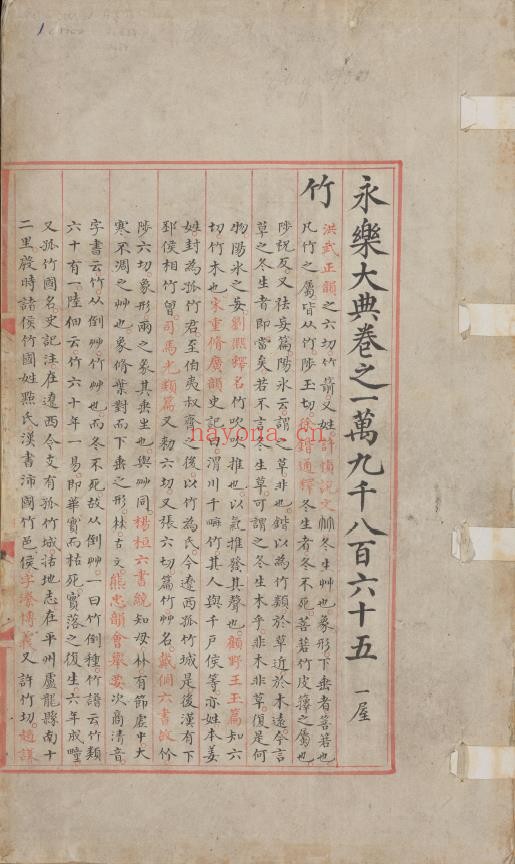 永樂大典卷之一萬九千八百六十五 一屋
竹
洪武正韻之六切竹箭又姓許愼説文竹冬生艸也象形下垂者箁箬也
凡竹之屬皆从竹陟玉切徐鍇通釋冬生者冬不死箁箬竹皮籜之屬也
陟祝反又祛妄篇陽氷云謂之草非也鍇以為竹類於草近於木遠今言
草之冬生者即當矣若不言冬生草可謂之冬生木乎非木非草復是何
物陽氷之妄劉熙釋名竹吹吹推也以氣推發其聲也顧野王玉篇知六
切竹木也宋重修廣韻史記曰渭川千畝竹其人與千户侯等亦姓本姜
姓封為孤竹君至伯夷叔齊之後以竹為氏今遼西孤竹城是後漢有下
邳侯相竹曾司馬光類篇又勑六切又張六切篇竹艸名戴侗六書故
陟六切象形兩之象其垂出也與艸同楊桓六書統知母林有節虚中大
寒不凋之艸也象修葉對而下垂之形林古文熊忠韻會舉要次商清音
字書云竹从倒艸竹艸也而冬不死故从倒艸一曰竹倒種竹譜云竹類
六十有一陸佃云竹六十年一易即華實而枯死實落之復生六年成疃
又孤竹國名史記注在遼西令支有孤竹城括地志在平州盧龍縣南十
二里殷時諸侯竹國姓墨氏漢書沛國竹邑侯字濚博義又許竹切趙謙
nayona.cn